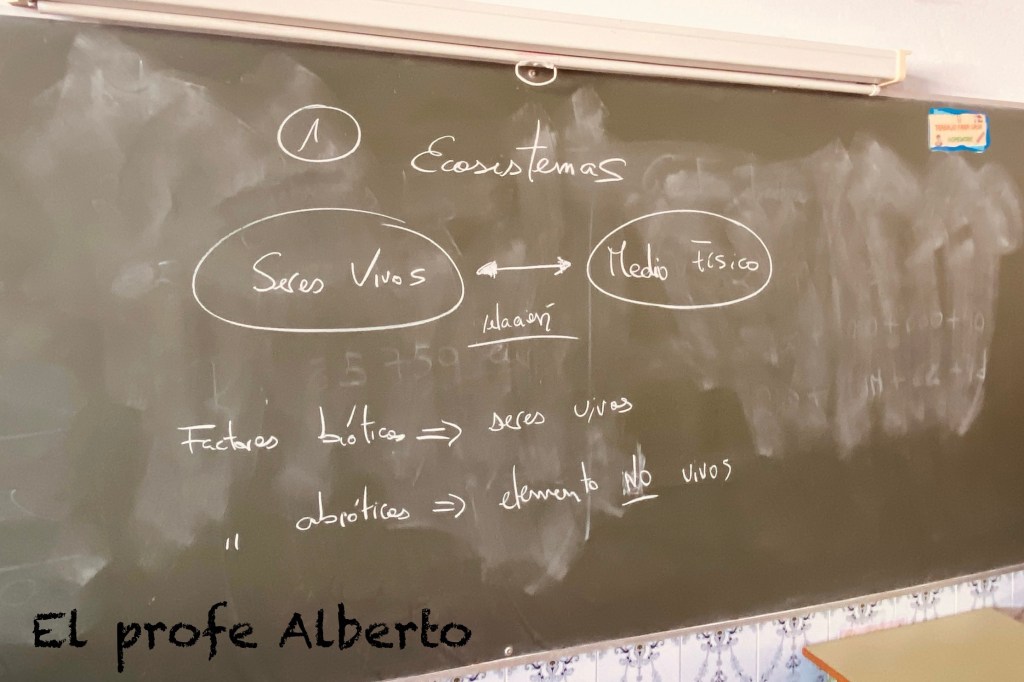 1
Ecosistemas
Seres Vivos ↔ Medio Físico
relación
Factores bióticos ⇒ seres vivos
" abióticos ⇒ elemento NO vivos
El profe Alberto